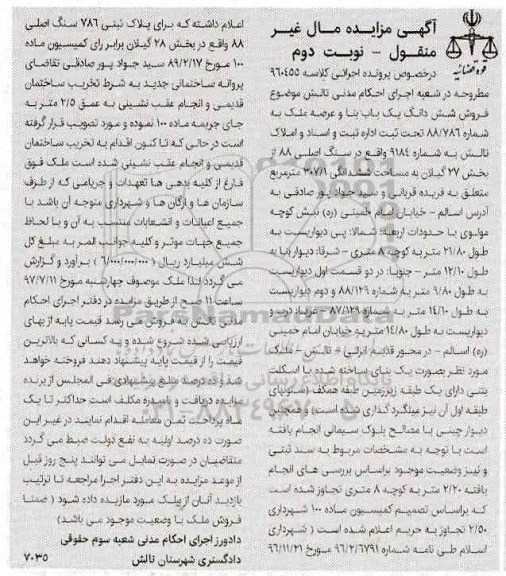 آگهی مزایده مال غیر
منقول - نوبت دوم
قوه قضائیه
درخصوص پرونده اجرائی کلاسه ۹۶۰۴۵۵
مطروحه در شعبه اجرای احکام مدنی تالش موضوع
فروش شش دانگ یک باب بنا و عرصه ملک به
شماره ۸۸/۷۸۶ تحت ثبت اداره ثبت و اسناد و املاک
تالش به شماره ۹۱۸۴ واقع در سنگ اصلی ۸۸ از
بخش ۲۷ گیلان به مساحت ششدانگی ۳۰۷/۱ مترمربع
متعلق به فریده قربانی و سید جواد پور صادقی به
آدرس اسالم - خیابان امام خمینی (ره) نبش کوچه
مولوی با حدودات اربعه: شمالا: پی دیواریست به
طول ۲۱/۸۰ متر به کوچه ۸ متری - شرقا: دیوار بنا به
طول ۱۲/۱۰ متر - جنوبا: در دو قسمت اول دیواریست
به طول ۹/۸۰ متر به شماره ۸۸/۱۲۹ و دوم دیواریست
به طول ۱۴/۶۰ متر به شماره ۸۷/۱۲۹ - غربا: درب و
دیواریست به طول ۱۴/۸۰ متر به خیابان امام خمینی
(ره) اسالم - در محور قدیم انزلی - تالش - ملک
مورد نظر بصورت یک بنای ساخته شده با اسکلت
بتنی دارای یک طبقه زیرزمین طبقه همکف (ستونهای
طبقه اول آن نیز میلگرد گذاری شده است) و همچنین
دیوار چینی با مصالح بلوک سیمانی انجام یافته
است با توجه به مشخصات مربوط به سند ثبتی
و نیز وضعیت موجود براساس بررسی های انجام
یافته ۲/۲۰ متر به کوچه ۸ متری تجاوز شده است
که براساس تصمیم کمیسیون ماده ۱۰۰ شهرداری
۲/۵۰ تجاوز به حریم اعلام شده است ( شهرداری
اسلام طی نامه شماره ۹۶/۲/۶۷۹۱ مورخ ۹۶/۱۱/۲۱
اعلام داشته که برای پلاک ثبتی ۷۸۶ سنگ اصلی
۸۸ واقع در بخش ۲۸ گیلان برابر رای کمیسیون ماده
۱۰۰ مورخ ۸۹/۲/۱۷ سید جواد پور صادقی تقاضای
پروانه ساختمانی جدید به شرط تخریب ساختمان
قدیمی و انجام عقب نشینی به عمق ۲/۵ متر به
جای جریمه ماده ۱۰۰ نموده و مورد تصویب قرار گرفته
است در حالی که تا کنون اقدام به تخریب ساختمان
قدیمی و انجام عقب نشینی شده است ملک فوق
فارغ از کلیه بدهی ها تعهدات و جرایمی که از طرف
سازمان ها و ارگان ها و شهرداری متوجه آن باشد با
جمیع اعیانات و انشعابات منتسب به آن و با لحاظ
جمیع جهات موثر و کلیه جوانب المر به مبلغ کل
شش میلیارد ریال ( ۶/۰۰۰/۰۰۰/۰۰۰ ) برآورد و گزارش
می گردد لذا ملک موصوف چهارشنبه مورخ ۹۷/۷/۱۱
ساعت ۱۱ صبح از طریق مزایده در دفتر اجرای احکام
مدنی تالش به فروش می رسد قیمت پایه از بهای
ارزیابی شده شروع شده و به کسانی که بالاترین
قیمت را از قیمت پایه پیشنهاد دهند فروخته خواهد
شد و ده درصد مبلغ پیشنهادی فی المجلس از برنده
مزایده دریافت و نامبرده مکلف است حداکثر تا یک
ماه پرداخت ثمن معامله اقدام نمایند در غیر این
صورت ده درصد اولیه به نفع دولت ضبط می گردد
متقاضیان در صورت تمایل می توانند پنج روز قبل
از موعد مزایده به این دفتر اجرا مراجعه تا ترتیب
بازدید آنان از ملک مورد مزایده داده شود ( ضمنا
فروش ملک با وضعیت موجود می باشد)
دادورز اجرای احکام مدنی شعبه سوم حقوقی
دادگستری شهرستان تالش
۷۰۳۵
ParsNamadData